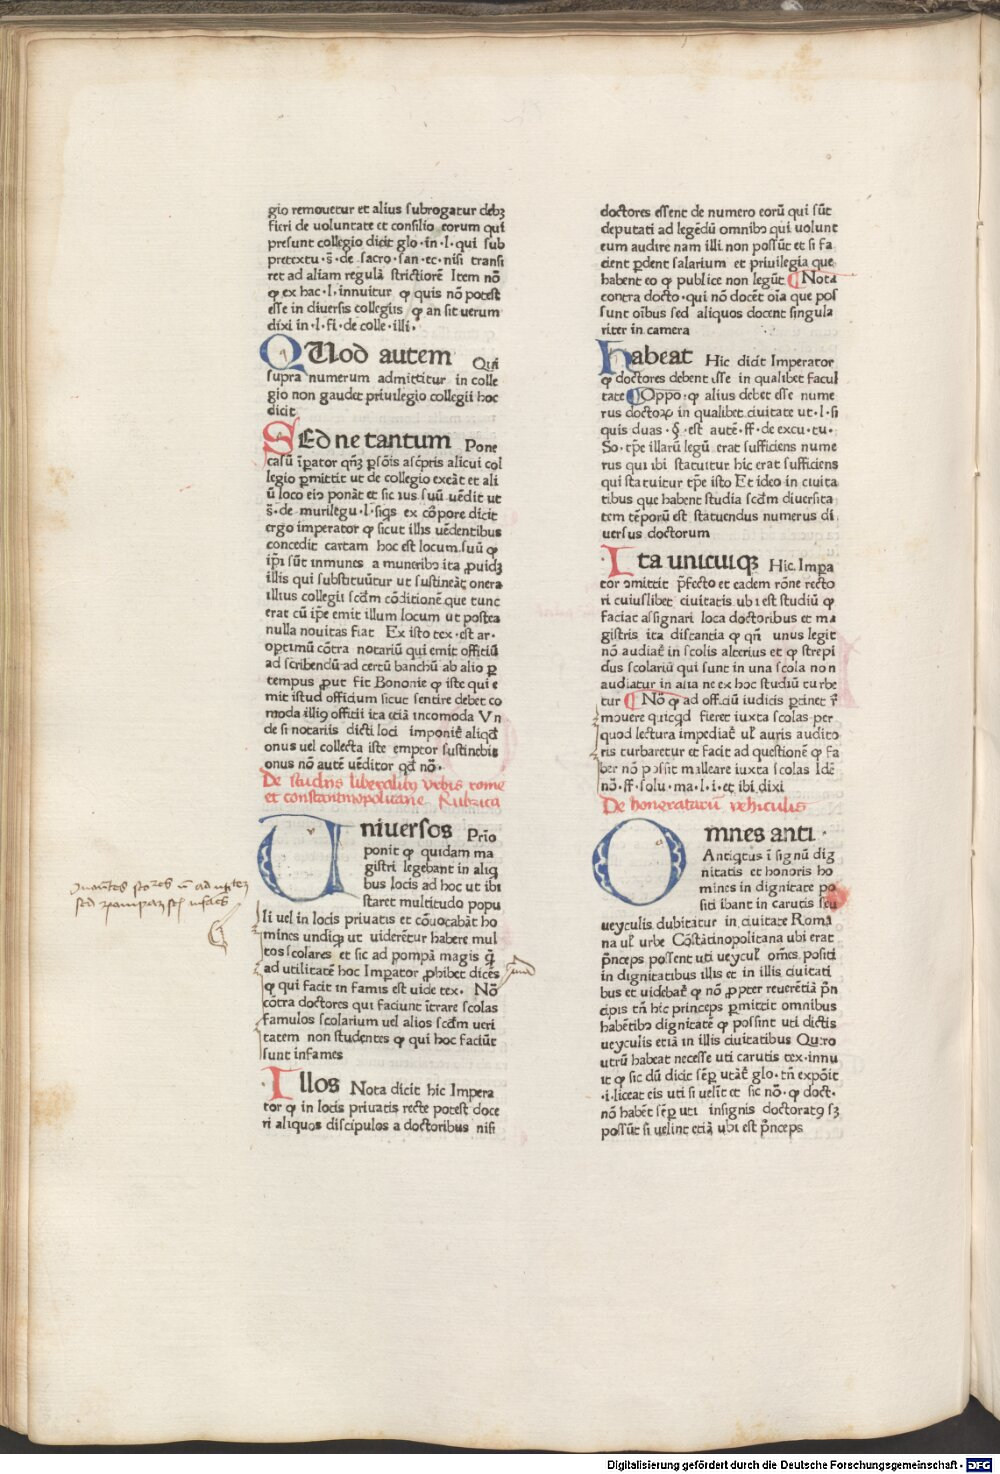 gio remouetur et alius subrogatur debꝫ
fieri de uoluntate et consilio eorum qui
presunt collegio dicit glo·in·l·qui sub
pretextu·§·de sacro·san·ec·nisi transi
ret ad aliam regulā strictiorē Item nō
ꝙ ex hac·l·innuitur ꝙ quis nō potest
esse in diuersis collegiis ꝙ an sit uerum
dixi in·l·fi·de colle·illi·
QUod autem Qui
supra numerum admittitur in colle
gio non gaudet priuilegio collegii hoc
dicit
SEd ne tantum Pone
casū īꝑator qn̄ꝫ ꝑsōis asc̄pris alicui col
legio ꝑmittit ut de collegio exeāt et ali
ū loco eiꝰ ponāt et sic ius suū uēdit ut
§·de murilegu·l·siqͥs ex cōpore dicit
ergo imperator ꝙ sicut illis uēdentibus
concedit cartam hoc est locum suū ꝙ
ip̄i sūt inmunes a muneribꝰ ita ꝓuidꝫ
illis qui substituūtur ut sustineāt onera
illius collegii scđm cōditionē que tunc
erat cū ip̄e emit illum locum ut postea
nulla nouitas fiat Ex isto tex·est ar·
optimū cōtra notariū qui emit officiū
ad scribendū ad certū banchū ab alio ꝑ
tempus ꝓut fit Bononie ꝙ iste qui e
mit istud officium sicut sentire debet co
moda illiꝰ officii ita etiā incomoda Vn
de si notariis dicti loci imponit̄ aliqđ
onus uel collecta iste emptor sustinebit
onus nō autē uēditor qđ nō·
De studiis liberalibꝰ vrbis rome
et constantinopolitane Rubrica
Uniuersos Prīo
ponit ꝙ quidam ma
gistri legebant in aliqͥ
bus locis ad hoc ut ibi
staret multitudo popu
li uel in locis priuatis et cōuocabāt ho
mines undiqꝫ ut uiderētur habere mul
tos scolares et sic ad pompā magis q̄ꝫ
ad utilitatē hoc Imperator ꝓhibet dicēs
ꝙ qui facit infamis est uide tex· Nō
cōtra doctores qui faciunt ītrare scolas
famulos scolarium uel alios scđm ueri
tatem non studentes ꝙ qui hoc faciūt
sunt infames
Illos Nota dicit hic Impera
tor ꝙ in locis priuatis recte potest doce
ri aliquos discipulos a doctoribus nisi
doctores essent de numero eorū qui sūt
deputati ad legēdū omnibꝰ qui uolunt
eum audire nam illi non possūt et si fa
cient ꝑdent salarium et priuilegia que
habent eo ꝙ publice non legūt Nota
contra docto·qui nō docēt oīa que pos
sunt oībus sed aliquos docent singula
riter in camera
habeat Hic dicit Imperator
ꝙ doctores debent esse in qualibet facul
tate Oppo·ꝙ alius debet esse nume
rus doctorꝝ in qualibet ciuitate ut·l·si
quis duas·§·est autē·ff·de excu·tu·
So·tp̄e illarū legū erat sufficiens nume
rus qui ibi statuitur hic erat sufficiens
qui statuitur tp̄e isto Et ideo in ciuita
tibus que habent studia scđm diuersita
tem tēporū est statuendus numerus di
uersus doctorum
Ita unicuiqꝫ Hic Impa
tor ꝯmittit p̄fecto et eadem rōne recto
ri cuiuslibet ciuitatis ubi est studiū ꝙ
faciat assignari loca doctoribus et ma
gistris ita distantia ꝙ qn̄ unus legit
nō audiat̄ in scolis alterius et ꝙ strepi
dus scolariū qui sunt in una scola non
audiatur in alia ne ex hoc studiū turbe
tur Nō ꝙ ad officiū iudicis ꝑtinet r̄
mouere quicqđ fieret iuxta scolas per
quod lectura impediat̄ ul̄ auris audito
ris turbaretur et facit ad questionē ꝙ fa
ber nō possit malleare iuxta scolas Idē
nō·ff·solu·ma·l·i·et ibi dixi
De honoratorū vehiculis
Omnes anti·
Antiqͥtus ī signū dig
nitatis et honoris ho
mines in dignitate po
siti ibant in carutis seu
ueyculis dubitatur in ciuitate Roma
na ul̄ urbe Cōstātinopolitana ubi erat
pͥnceps possent uti ueycul̄ om̄es positi
in dignitatibus illis et in illis ciuitati
bus et uidebat̄ ꝙ nō ꝓpter reuerētiā pͥn
cipis tn̄ hic princeps ꝑmittit omnibus
habētibꝰ dignitatē ꝙ possint uti dictis
ueyculis etiā in illis ciuitatibus Quero
utrū habeat necesse uti carutis tex·innu
it ꝙ sic dū dicit sēꝑ utāt̄ glo·tn̄ expōit
·i·liceat eis uti si uelīt et sic nō·ꝙ doct·
nō habēt sēꝑ uti insignis doctoratꝰ sꝫ
possūt si uelint etiā ubi est pͥnceps
Digitalisierung gefördert durch die Deutsche Forschungsgemeinschaft - DFG